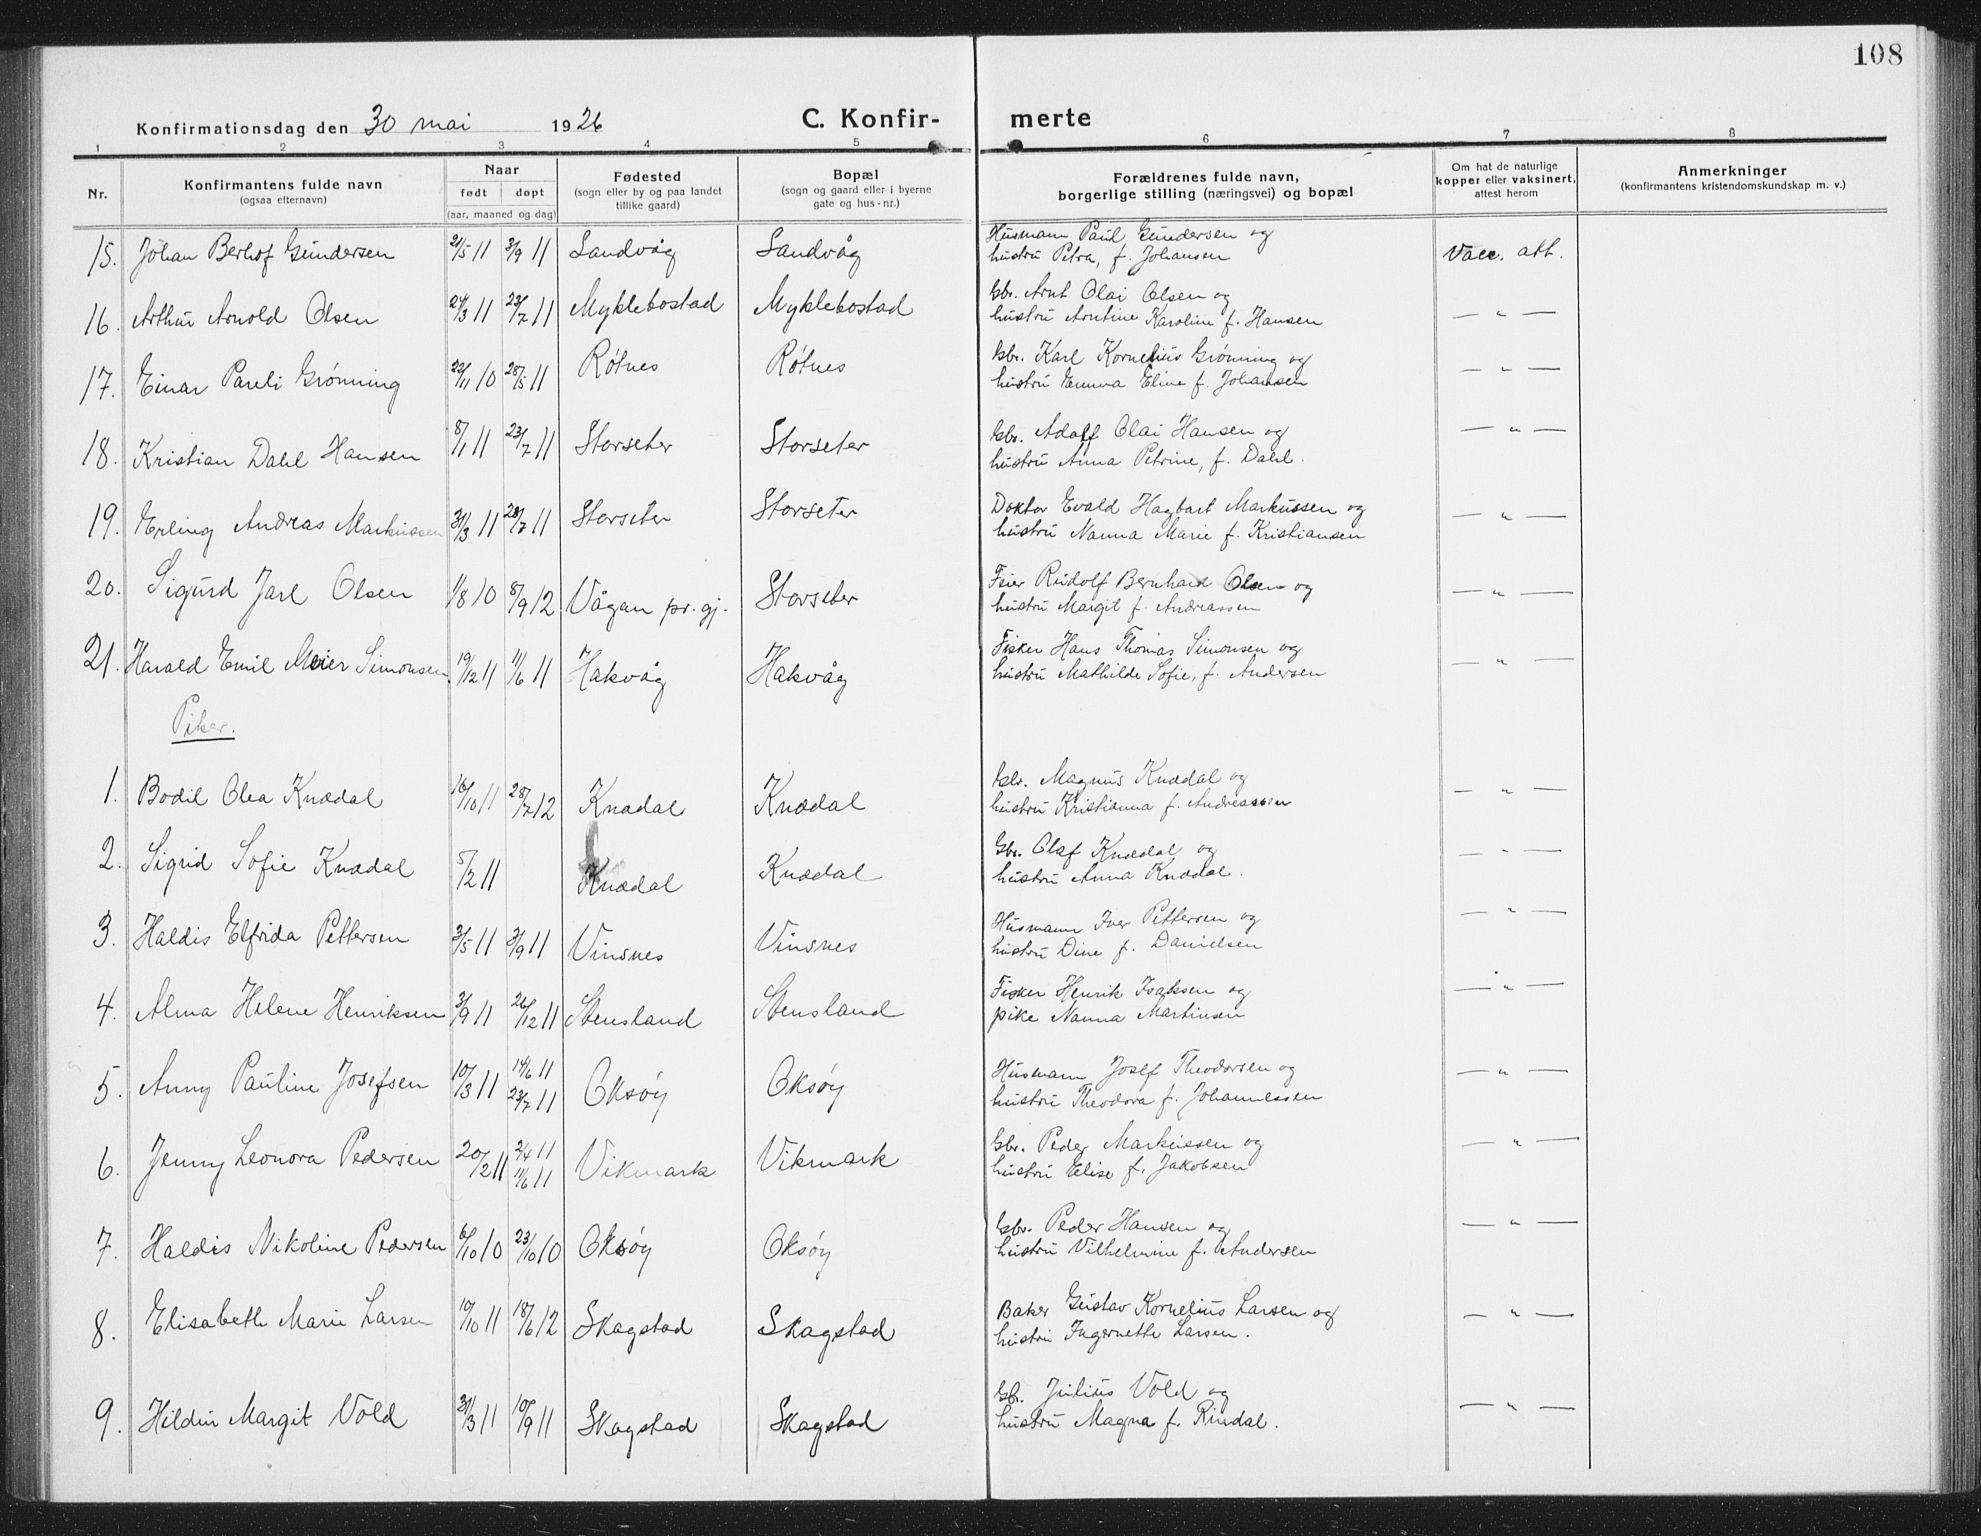 108
Konfirmationsdag den 30 mai 1926 C. Konfir- merte
1 2 3 4 5 6 7 8
Nr. Konfirmantens fulde navn (ogsaa efternavn) Naar født døpt (aar, maaned og dag) Fødested (sogn eller by og paa landet tillike gaard) Bopæl (sogn og gaard eller i byerne gate og hus-nr.) Forældrenes fulde navn, borgerlige stilling (næringsvei) og bopæl Om hat de naturlige kopper eller vaksinert, attest herom Anmerkninger (konfirmantens kristendomskundskap m. v.)
15. Johan Berhof Gundersen 21/5 11 3/9 11 Sandvåg Sandvåg Husmann Paul Gundersen og
hustru Petra, f. Johansen Vacc. att.
16. Arthur Arnold Olsen 24/3 11 23/7 11 Myklebostad Myklebostad Gbr. Arnt Olai Olsen og
hustru Arntine Karoline f. Hansen — " —
17. Einar Pareli Grønning 22/11 10 28/5 11 Røtnes Røtnes Gbr. Karl Kornelius Grønning og
hustru Emma Eline f. Johansen — " —
18. Kristian Dahl Hansen 8/1 11 23/7 11 Storseter Storseter Gbr. Adolf Olai Hansen og
hustru Anna Petrine, f. Dahl. — " —
19. Erling Andreas Markussen 31/3 11 23/7 11 Storseter Storseter Doktor Evald Hagbart Markussen og
hustru Nanna Marie f. Kristiansen — " —
20. Sigurd Jarl Olsen 1/8 10 8/9 12 Vågan pr.gj. Storseter Feier Rudolf Bernhard Olsen og
hustru Margit f. Andreassen — " —
21. Harald Emil Meier Simonsen 19/12 11 11/6 11 Hakvåg Hakvåg Fisker Hans Thomas Simonsen og
hustru Mathilde Sofie, f. Andersen — " —
Piker.
1. Bodil Olea Knædal 16/10 11 28/7 12 Knadal Knædal Gbr. Magnus Knædal og
hustru Kristianna f. Andreassen — " —
2. Sigrid Sofie Knædal 5/2 11 Knædal Knædal Gbr. Olaf Knædal og
hustru Anna Knædal. — " —
3. Haldis Elfrida Pettersen 3/5 11 3/9 11 Vinsnes Vinsnes Husmann Iver Pettersen og
hustru Dine f. Danielsen — " —
4. Alma Helene Henriksen 3/9 11 26/12 11 Stensland Stensland Fisker Henrik Isaksen og
pike Nanna Martinsen — " —
5. Anny Pauline Josefsen 10/3 11 14/6 11 23/7 11 Oksøy Oksøy Husmann Josef Theodorsen og
hustru Theodora f. Johannessen — " —
6. Jenny Leonora Pedersen 20/2 11 2/4 11 11/6 11 Vikmark Vikmark Gbr. Peder Markussen og
hustru Elise f. Jakobsen — " —
7. Haldis Nikoline Pedersen 6/10 10 23/10 10 Oksøy Oksøy Gbr. Peder Hansen og
hustru Vilhelmine f. Andersen — " —
8. Elisabeth Marie Larsen 10/10 11 18/6 12 Skagstad Skagstad Baker Gustav Kornelius Larsen og
hustru Ingernethe Larsen. — " —
9. Hildur Margit Vold 31/3 11 10/9 11 Skagstad Skagstad Gbr. Julius Vold og
hustru Magna f. Rindal. — " —